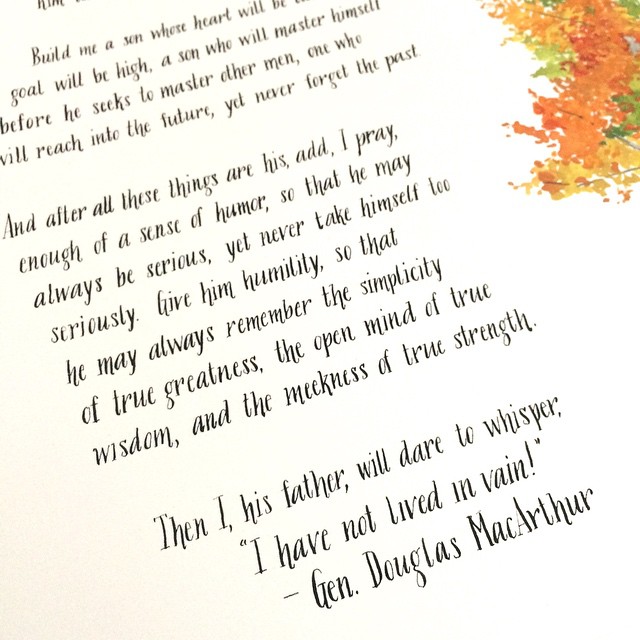 Build me a son whose heart will be
goal will be high, a son who will master himself
before he seeks to master other men, one who
will reach into the future, yet never forget the past
And after all these things are his, add, I pray,
enough of a sense of humor, so that he may
always be serious, yet never take himself too
seriously. Give him humility, so that
he may always remember the simplicity
of true greatness, the open mind of true
wisdom, and the meekness of true strength.
Then I, his father, will dare to whisper,
"I have not lived in vain!"
- Gen. Douglas MacArthur